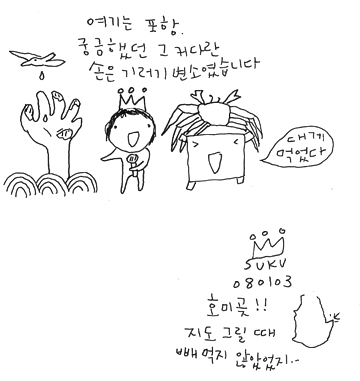 여기는 포항.
궁금했던 그 커다란
손은 기러기 변소였습니다
대게
먹었다
SUKU
080103
호미곶!!
지도 그릴 때
빼먹지 않았었지..